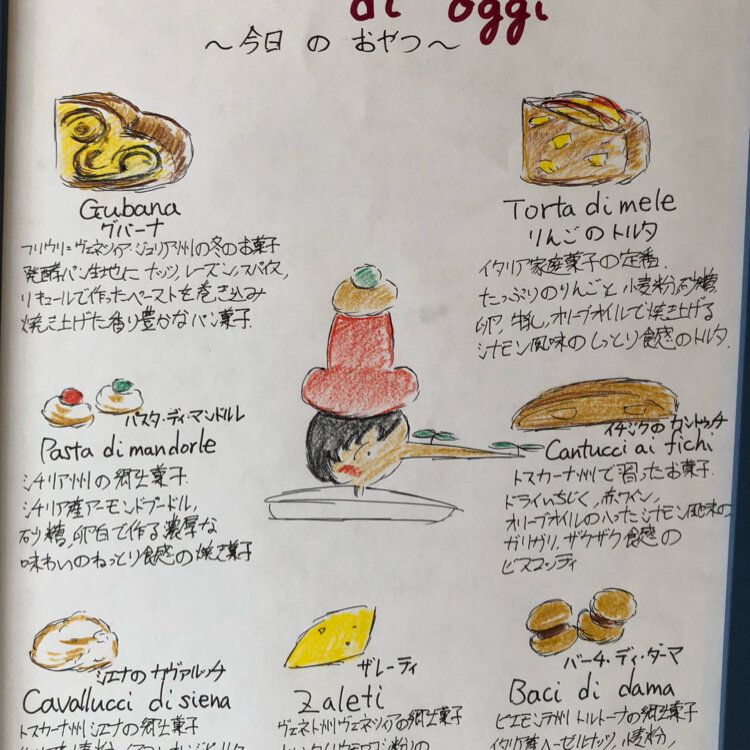 di oggi
～今日のおやつ～
Gubana
グバーナ
フリウリ＝ヴェネツィア・ジュリア州の冬のお菓子
発酵パン生地にナッツ、レーズン、スパイス、
リキュールで作ったペーストを巻き込み
焼き上げた香り豊かなパン菓子
Torta di mele
りんごのトルタ
イタリア家庭菓子の定番.
たっぷりのりんごと小麦粉、砂糖
卵、牛乳、オリーブオイルで焼き上げる
シナモン風味のしっとり食感のトルタ.
パスタ・ディ・マンドルレ
Pasta di mandorle
シチリア州の郷土菓子
シチリア産アーモンドプードル,
砂糖、卵白で作る濃厚な
味わいのねっとり食感の焼き菓子
イチジクのカントゥッチ
Cantucci ai fichi
トスカーナ州で習ったお菓子.
ドライいちじく、赤ワイン,
オリーブオイルの入ったシナモン風味の
ガリガリ、ザクザク食感の
ビスコッティ
シエナのカヴァルッチ
Cavallucci di siena
トスカーナ州シエナの郷土菓子
ザレーティ
Zaleti
ヴェネト州ヴェネツィアの郷土菓子
バーチ・ディ・ダーマ
Baci di dama
ピエモンテ州トルトーナの郷土菓子
イタリア産ヘーゼルナッツ、小麦粉,